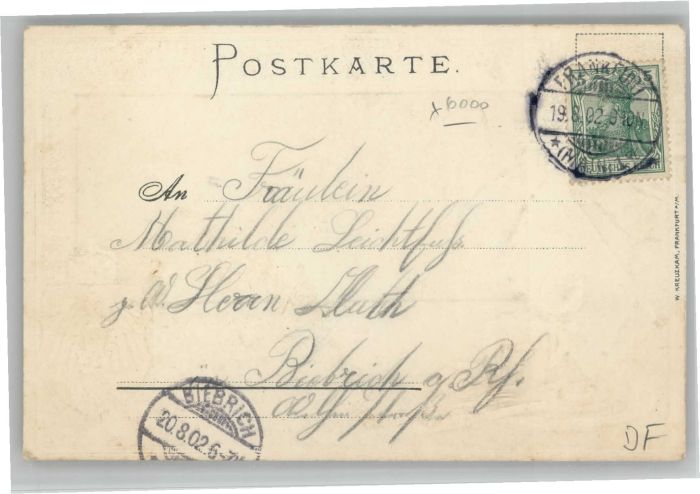 POSTKARTE.
x 6000
FRANKFURT
19.8.02.
*(M
5
An Fräulein
Mathilde Leichtfuß
Herrn
Biebrich a Rh.
BIEBRICH
20.8.02.6-7
W. KREUZKAM, FRANKFURT a/M.
DF